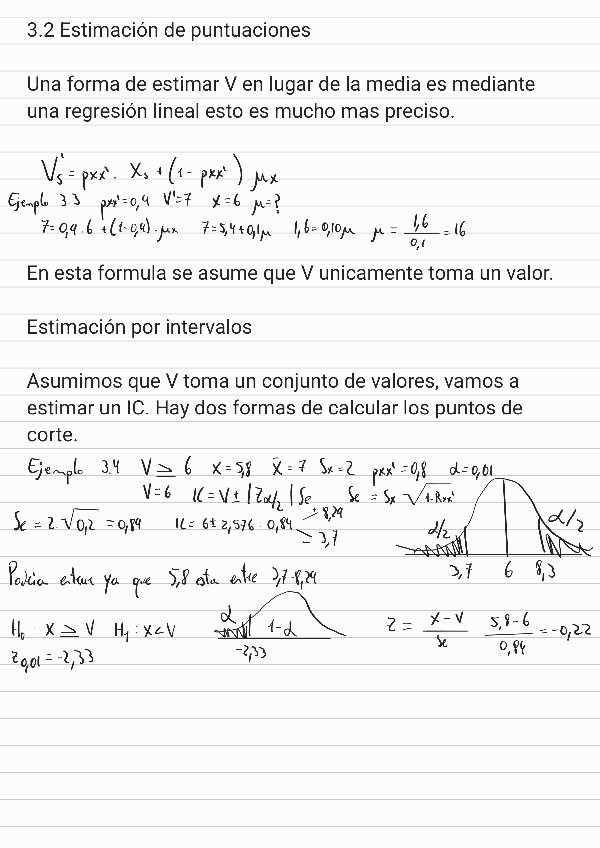 3.2 Estimación de puntuaciones
Una forma de estimar V en lugar de la media es mediante
una regresión lineal esto es mucho mas preciso.
Vs' = ρxx' · Xs + (1 - ρxx') μx
Ejemplo 3.3 ρxx'=0,9 V'=7 X=6 μ=?
7=0,9·6+(1-0,9)·μx 7=5,4+0,1μ 1,6=0,10μ μ = 1,6/0,1 = 16
En esta formula se asume que V unicamente toma un valor.
Estimación por intervalos
Asumimos que V toma un conjunto de valores, vamos a
estimar un IC. Hay dos formas de calcular los puntos de
corte.
Ejemplo 3.4 V ≥ 6 X=5,8 X̄=7 Sx=2 ρxx'=0,8 α=0,01
V=6 IC=V± |Zα/2| Se Se = Sx √1-Rxx'
Se = 2·√0,2 = 0,89 IC=6±2,576·0,89 + 8,29
- = 3,7
α/2 α/2
3,7 6 8,3
Podria entrar ya que 5,8 esta entre 3,7-8,29
H0: X ≥ V H1: X<V α 1-α Z = X-V/Se 5,8-6/0,89 = -0,22
Z0,01 = -2,33 -2,33